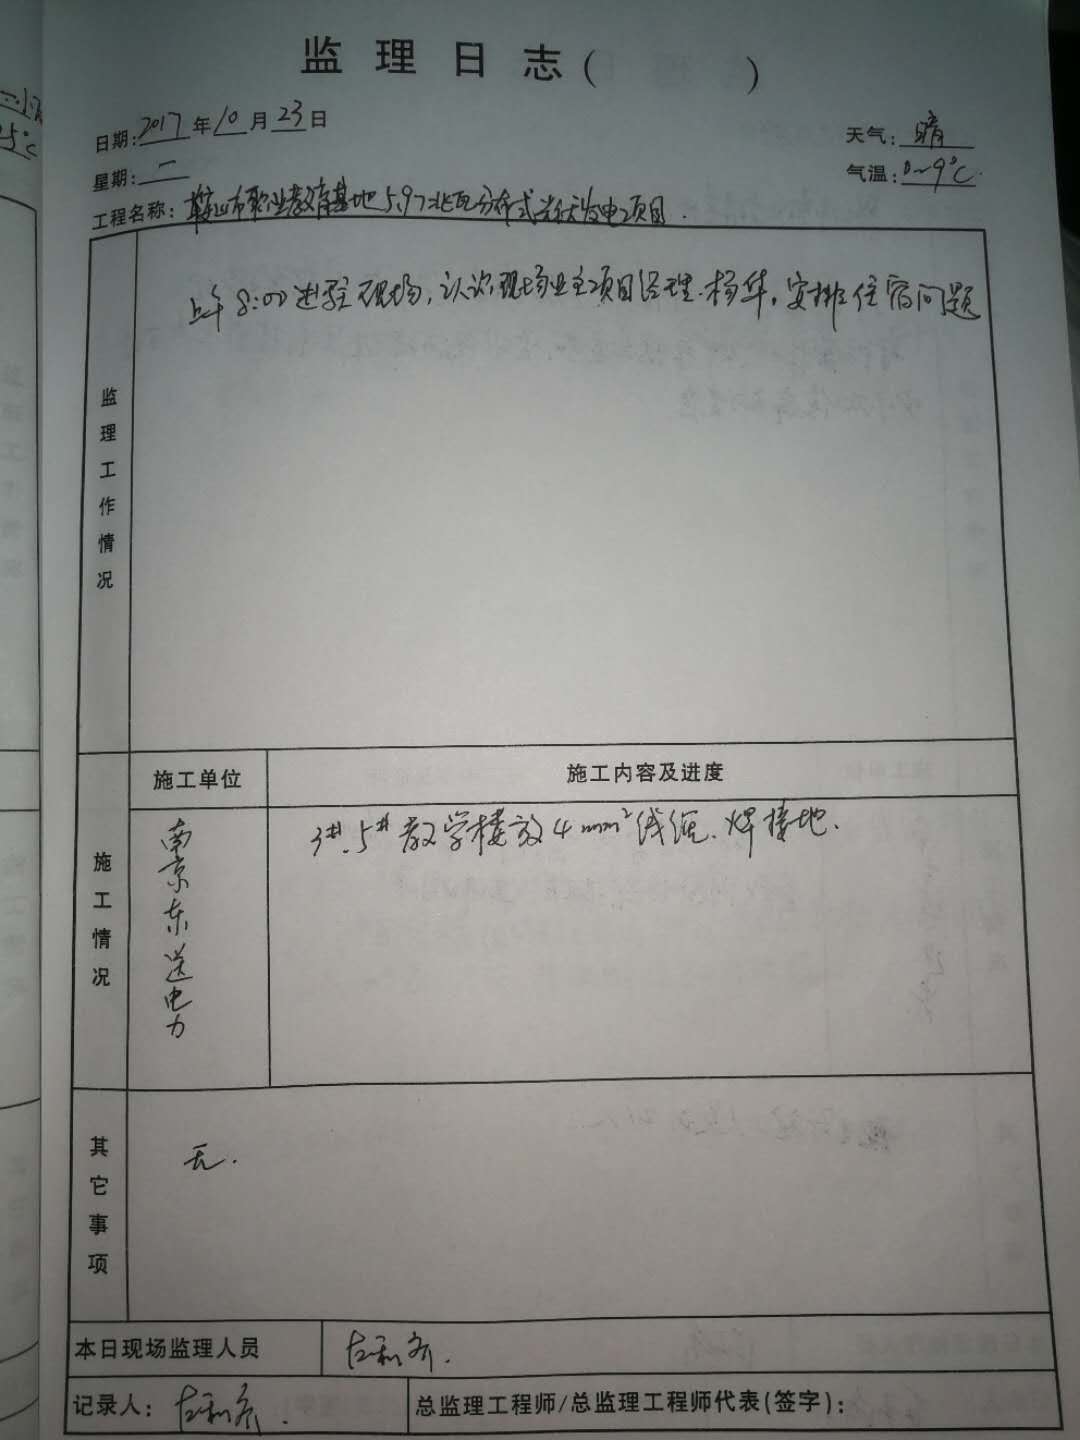 监理日志( )
日期:2017年10月23日
天气:晴
星期:一
气温:0~9℃
工程名称:鞍山市职业教育基地5.97兆瓦分布式光伏发电项目.
监理工作情况
上午8:00进驻现场,认识现场业主项目经理.杨华,安排住宿问题
施工单位
施工内容及进度
施工情况
南京东送电力
3#.5#教学楼放4mm²线缆.焊接地.
其它事项
无.
本日现场监理人员
记录人:
总监理工程师/总监理工程师代表(签字):